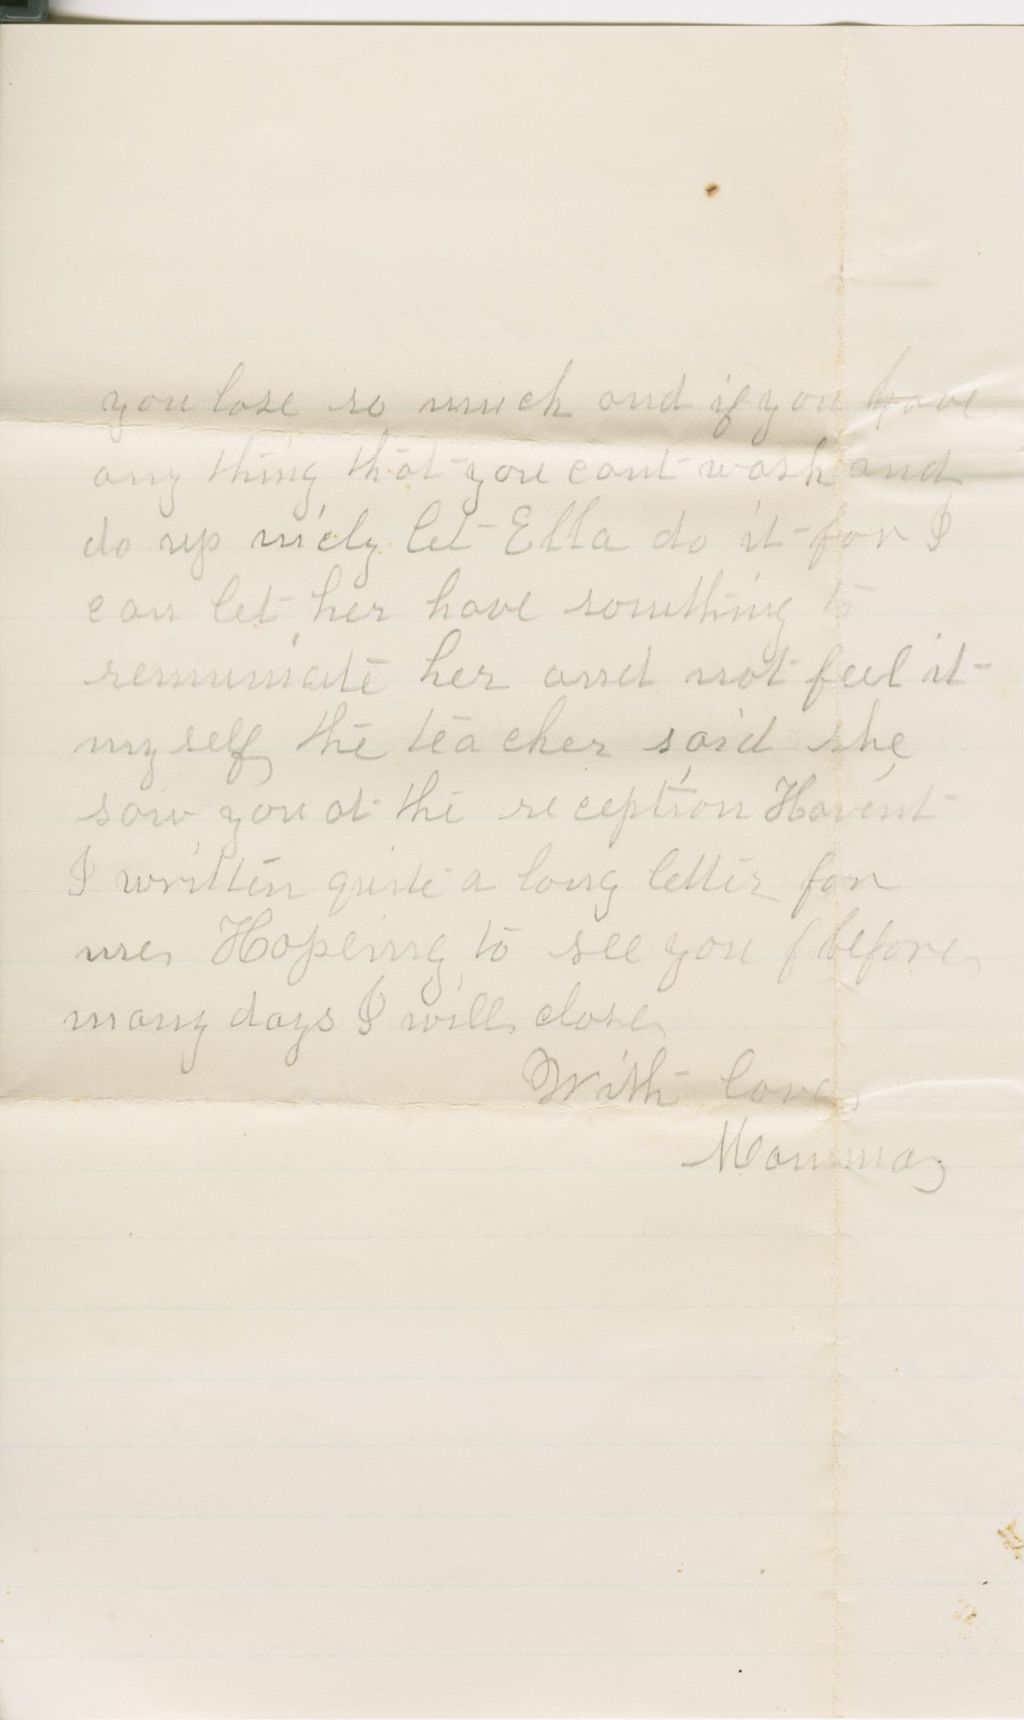 you lose so much and if you have
any thing that you cant wash and
do up nicely let Ella do it for I
can let her have something to
remuniate her and not feel it
myself, the teacher said she
saw you at the reception Havent
I written quite a long letter for
me, Hopeing to see you before
many days I will close
With love,
Mamma,